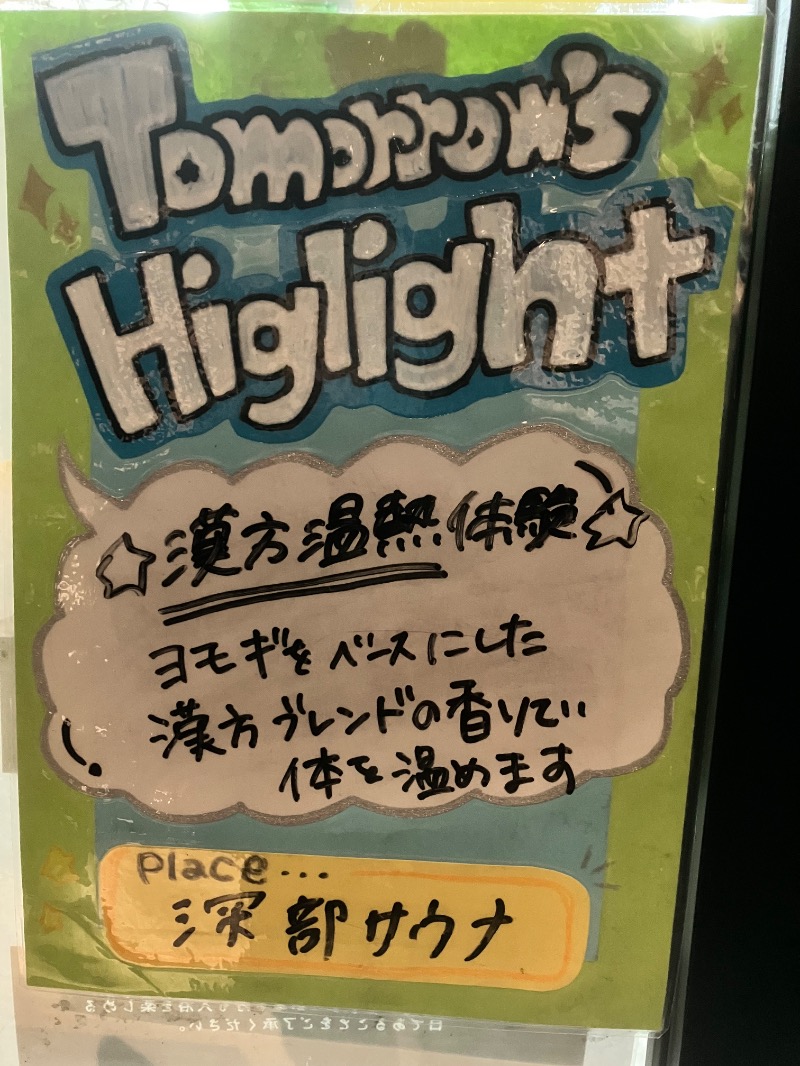 Tomorrow's
Higlight
☆漢方温熱体験☆
ヨモギをベースにした
漢方ブレンドの香りで
体を温めます
Place...
深部サウナ